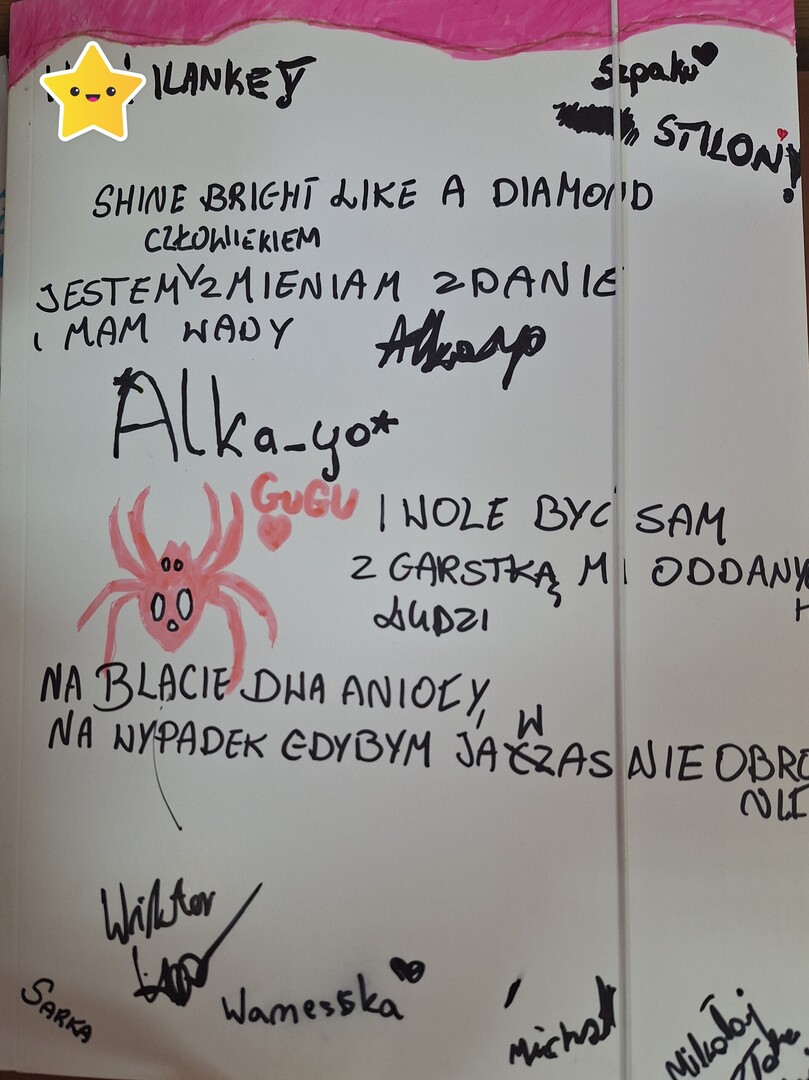 ILANKEY
Szpaku
STILON!
SHINE BRIGHT LIKE A DIAMOND
CZŁOWIEKIEM
JESTEM ZMIENIAM ZDANIE
I MAM WADY
*Alka_yo*
GUGU
I WOLE BYĆ SAM
Z GARSTKĄ MI ODDANY
H
LUDZI
NA BLACIE DWA ANIOŁY,
W
NA WYPADEK GDYBYM JA CZAS NIE OBRO
NLI
Wiktor
Wanesska
SARKA
Michał
Mikołaj